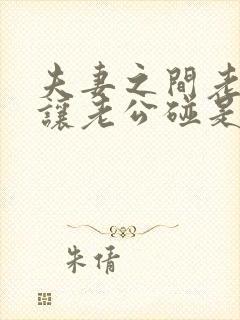 夫妻之間老
讓老公碰是
朱倩